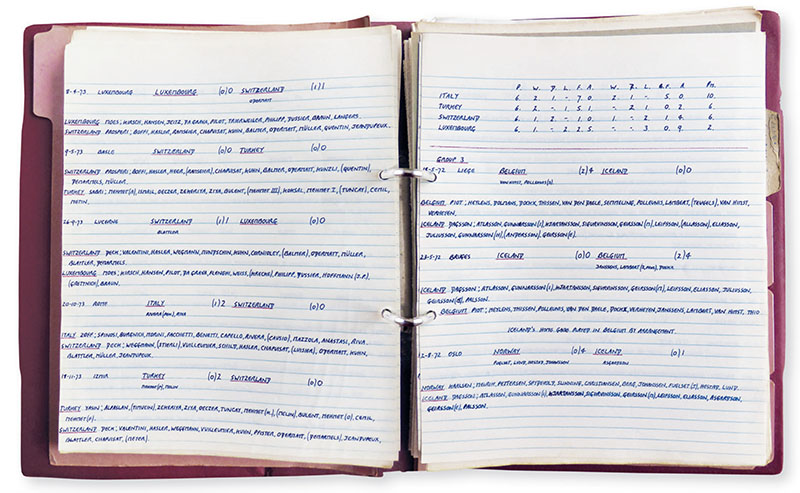 8-4-73 LUXEMBOURG LUXEMBOURG (0)0 SWITZERLAND (1)1
ODERMATT
LUXEMBOURG MOES; HIRSCH, HANSEN, JEITZ, DA GRAVA, PILOT, TRIERWEILER, PHILIPP, DUSSIER, BRAUN, LANGERS.
SWITZERLAND PROSPERI; BOFFI, HASLER, RAMSEIER, CHAPUISAT, KUHN, BALMER, ODERMATT, MÜLLER, QUENTIN, JEANDUPEUX.
9-5-73 BASLE SWITZERLAND (0)0 TURKEY (0)0
SWITZERLAND PROSPERI; BOFFI, HASLER, HEER, (RAMSEIER), CHAPUISAT, KUHN, BALMER, ODERMATT, KUNZLI, (QUENTIN),
DEMARMELS, MÜLLER.
TURKEY SABRI; MEHMET(O), ISMAIL, OEZER, ZEKERIYA, ZIYA, BULENT, (MEHMET III), KOKSAL, MEHMET I, (TUNCAY), CEMIL,
METIN.
26-9-73 LUCERNE SWITZERLAND (1)1 LUXEMBOURG (0)0
BLATTLER
SWITZERLAND DECK; VALENTINI, HASLER, WEGMANN, MUNDSCHIN, KUHN, CORNIOLEY, (BALMER), ODERMATT, MÜLLER,
BLATTLER, DEMARMELS.
LUXEMBOURG MOES; HIRSCH, HANSEN, PILOT, DA GRAVA, FLENGHI, WEISS, (MARTIN), PHILIPP, DUSSIER, HOFFMANN (J.P.),
(GRETHNICH), BRAUN.
20-10-73 ROME ITALY (1)2 SWITZERLAND (0)0
RIVERA (PEN), RIVA
ITALY ZOFF; SPINOSI, BURGNICH, MORINI, FACCHETTI, BENETTI, CAPELLO, RIVERA, (CAUSIO), MAZZOLA, ANASTASI, RIVA.
SWITZERLAND DECK; WEGMANN, (STIERLI), VUILLEUMIER, SCHILD, HASLER, CHAPUISAT, (LUISIER), ODERMATT, KUHN,
BLATTLER, MÜLLER, JEANDUPEUX.
18-11-73 IZMIR TURKEY (0)2 SWITZERLAND (0)0
MEHMET(O), METIN
TURKEY YASIN; ALPASLAN, (TIMUCIN), ZEKERIYA, ZIYA, OEZER, TUNCAY, MEHMET (M.), (METIN), BULENT, MEHMET (O), CEMIL,
MEHMET(O).
SWITZERLAND DECK; VALENTINI, HASLER, WEGMANN, VUILLEUMIER, KUHN, PFISTER, ODERMATT, (DEMARMELS), JEANDUPEUX,
BLATTLER, CHAPUISAT, (MEIER).
P. W. D. L. F. A. W. D. L. F. A. Pts.
ITALY 6. 2. 1. -. 7. 0. 2. 1. -. 5. 0. 10.
TURKEY 6. 2. -. 1. 5. 1. -. 2. 1. 0. 2. 6.
SWITZERLAND 6. 1. 2. -. 1. 0. 1. -. 2. 1. 4. 6.
LUXEMBOURG 6. 1. -. 2. 2. 5. -. -. 3. 0. 9. 2.
GROUP 3
18-5-72 LIEGE BELGIUM (2)4 ICELAND (0)0
VAN HIMST, POLLEUNIS(2).
BELGIUM PIOT; HEYLENS, DOLMANS, DOCKX, THISSEN, VAN DEN DAELE, SEMMELING, POLLEUNIS, LAMBERT, (TEUGELS), VAN HIMST,
VERHEYEN.
ICELAND DAGSSON; ATLASSON, GUNNARSSON(E), KJARTANSSON, SIGURVINSSON, GEIRSSON(M), LEIFSSON, (ALLASSON), ELIASSON,
JULIUSSON, GUNNARSSON(H), (ANDERSSON), GEIRSSON(E).
22-5-72 BRUGES ICELAND (0)0 BELGIUM (2)4
JANSSENS, LAMBERT (2,PEN), DOCKX.
ICELAND DAGSSON; ATLASSON, GUNNARSSON(E), KJARTANSSON, SIGURVINSSON, GEIRSSON(M), LEIFSSON, ELIASSON, JULIUSSON,
GEIRSSON(E), PALSSON.
BELGIUM PIOT; HEYLENS, THISSEN, POLLEUNIS, VAN DEN DAELE, DOCKX, VERHEYEN, JANSSENS, LAMBERT, VAN HIMST, THIO
ICELAND'S HOME GAME PLAYED IN BELGIUM BY ARRANGEMENT.
2-8-72 OSLO NORWAY (0)4 ICELAND (0)1
FUGLSET, LUND, HESTAD, JOHANSEN ASGEIRSSON
NORWAY KARLSEN; MEIRIK, PETTERSEN, SPYDEVOLD, SLINNING, CHRISTIANSEN, BERG, JOHANSEN, FUGLSET (J), HESTAD, LUND.
ICELAND DAGSSON; ATLASSON, GUNNARSSON(E), KJARTANSSON, SIGURVINSSON, GEIRSSON(M), LEIFSSON, ELIASSON, ASGEIRSSON,
GEIRSSON(E), PALSSON.